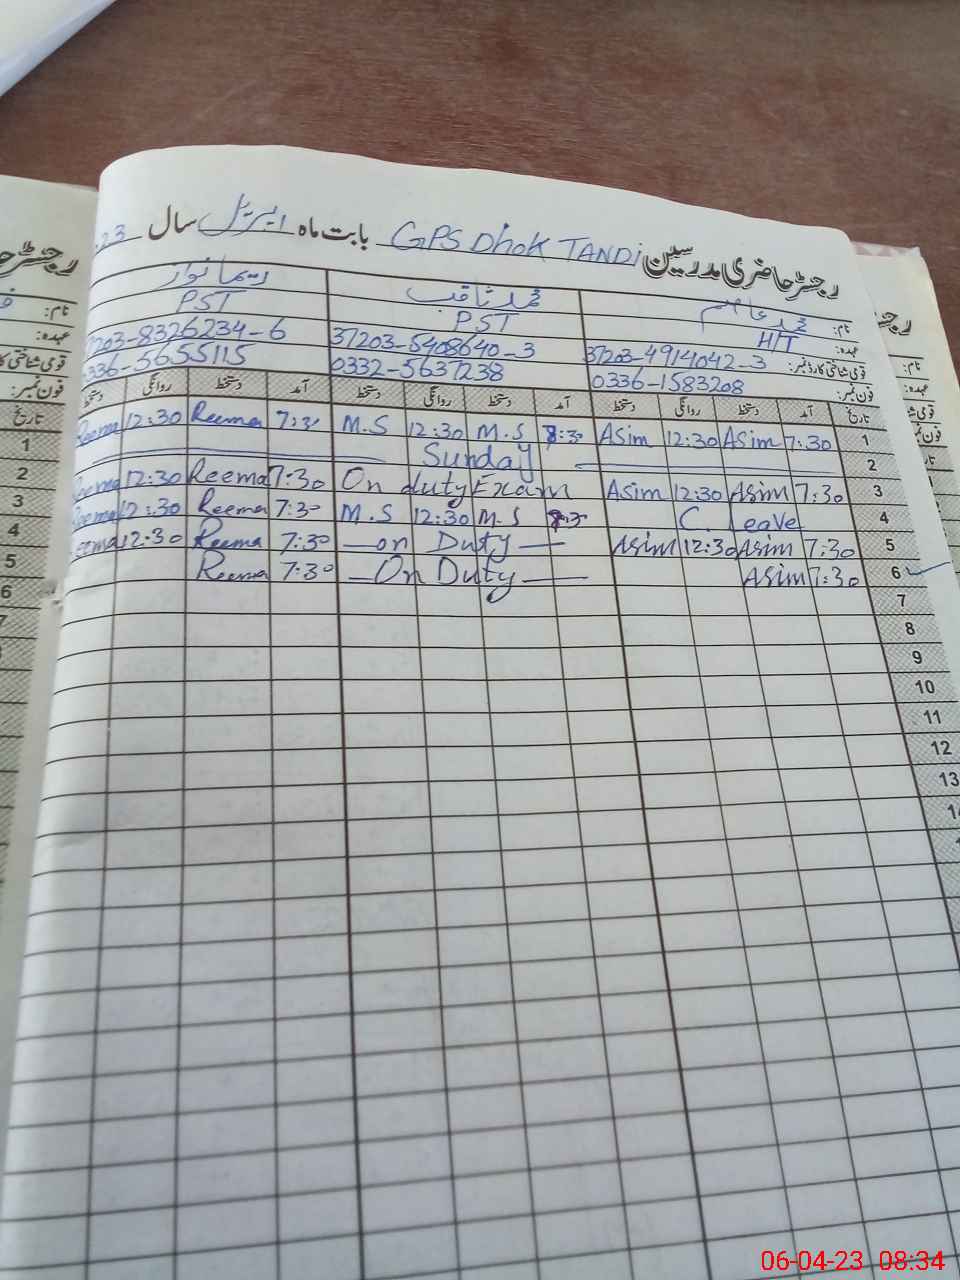 رجسٹر حاضری مدرسین GPS Dhok TANDi بابت ماہ اپریل سال 23
نام: محمد عاصم محمد ثاقب ریما نواز
عہدہ: H/T PST PST
قومی شناختی کارڈ نمبر: 37203-4914042-3 37203-5408640-3 7203-8326234-6
فون نمبر: 0336-1583208 0332-5637238 336-5655115
تاریخ آمد دستخط روانگی دستخط آمد دستخط روانگی دستخط آمد دستخط روانگی دستخط
1 7:30 Asim 12:30 Asim 7:30 M.S 12:30 M.S 7:30 Reema 12:30 Reema
2 Sunday
3 7:30 Asim 12:30 Asim On duty Exam 7:30 Reema 12:30 Reema
4 C. Leave 7:30 M.S 12:30 M.S 7:30 Reema 12:30 Reema
5 7:30 Asim 12:30 Asim on Duty 7:30 Reema 12:30 Reema
6 7:30 Asim On Duty 7:30 Reema
7
8
9
10
11
12
13
رجسٹر
نام:
عہدہ:
فون نمبر:
تاریخ
1
2
3
4
5
6
06-04-23 08:34